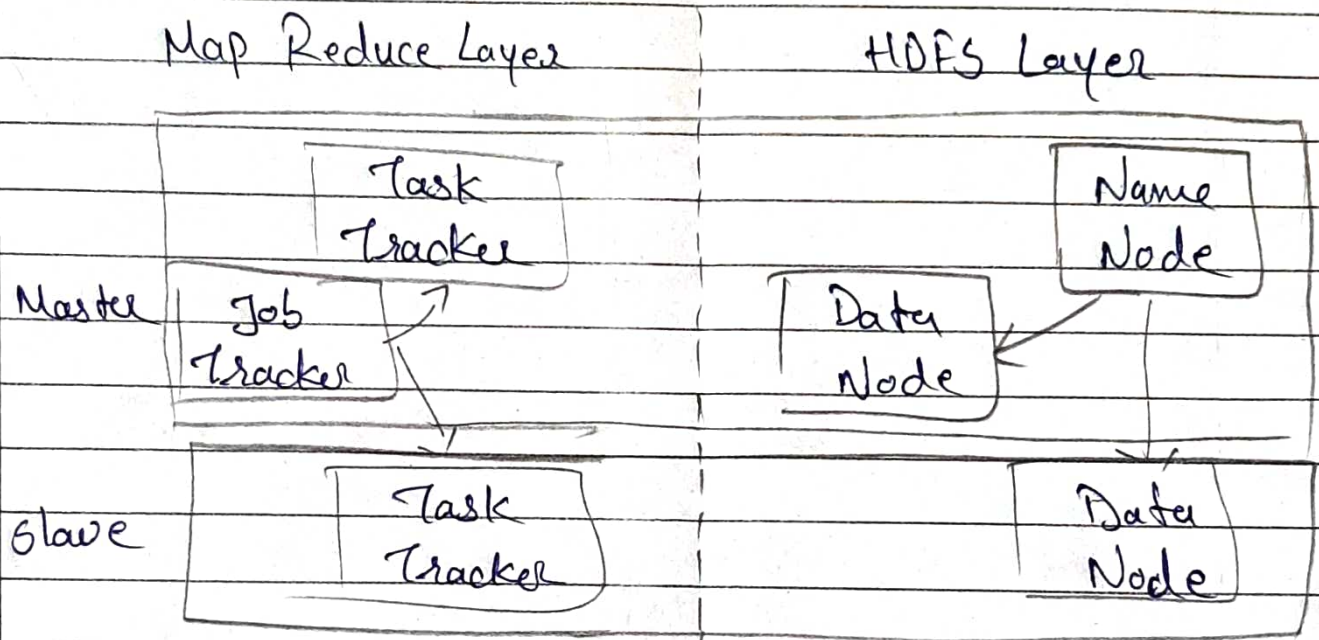 Map Reduce Layer
HDFS Layer
Task
Tracker
Name
Node
Master
Job
Tracker
Data
Node
Slave
Task
Tracker
Data
Node